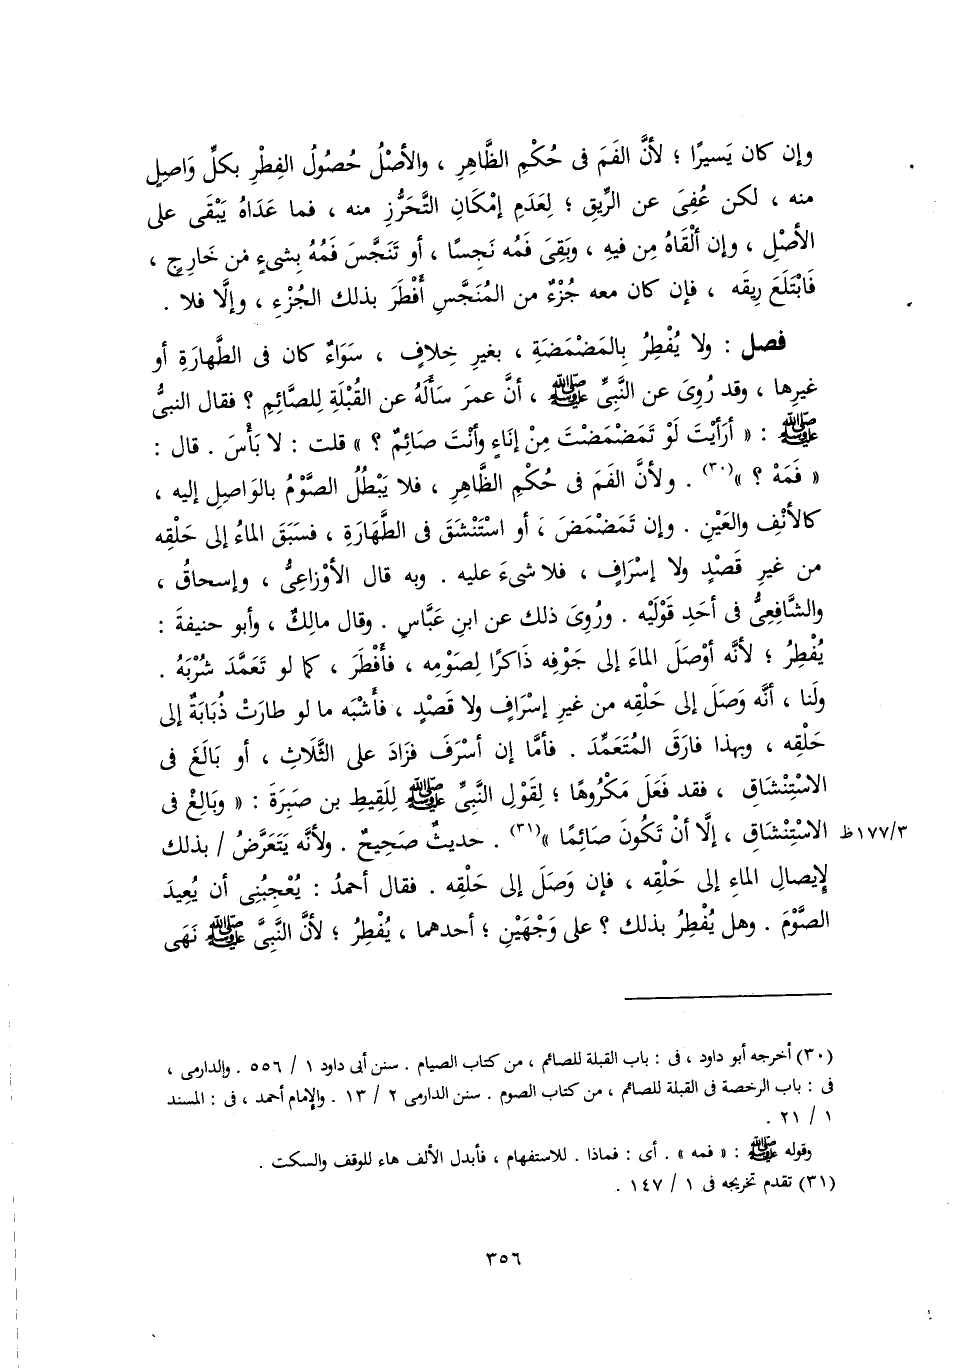 وإن كان يَسيرًا ؛ لأنَّ الفَمَ فى حُكْمِ الظَّاهِرِ ، والأصْلُ حُصُولُ الفِطْرِ بكلِّ وَاصِلٍ
منه ، لكن عُفِىَ عن الرِّيقِ ؛ لِعَدَمِ إمْكَانِ التَّحَرُّزِ منه ، فما عَدَاهُ يَبْقَى على
الأصْلِ ، وإن ألْقَاهُ مِن فيهِ ، وبَقِىَ فَمُه نَجِسًا ، أو تَنَجَّسَ فَمُهُ بِشىءٍ مَن خَارِجٍ ،
فَابْتَلَعَ رِيقَه ، فإن كان معه جُزْءٌ من المُنَجَّسِ أَفْطَرَ بذلك الجُزْءِ ، وإلَّا فلا .
فصل : ولا يُفْطِرُ بِالمَضْمَضَةِ ، بغيرِ خِلافٍ ، سَوَاءٌ كان فى الطَّهارَةِ أو
غيرِها ، وقد رُوِىَ عن النَّبِىِّ ﷺ ، أنَّ عمرَ سَأَلَهُ عن القُبْلَةِ لِلصَّائِمِ ؟ فقال النبىُّ
ﷺ : « أرَأيْتَ لَوْ تَمَضْمَضْتَ مِنْ إنَاءٍ وأنْتَ صَائِمٌ ؟ » قلت : لا بَأْسَ . قال :
« فَمَهْ ؟ »(٣٠) . ولأنَّ الفَمَ فى حُكْمِ الظَّاهِرِ ، فلا يَبْطُلُ الصَّوْمُ بالوَاصِلِ إليه ،
كالأنْفِ والعَيْنِ . وإن تَمَضْمَضَ ، أو اسْتَنْشَقَ فى الطَّهَارَةِ ، فسَبَقَ الماءُ إلى حَلْقِه
من غيرِ قَصْدٍ ولا إسْرَافٍ ، فلا شىءَ عليه . وبه قال الأوْزاعِىُّ ، وإسحاقُ ،
والشَّافِعِىُّ فى أحَدِ قَوْلَيْه . ورُوِىَ ذلك عن ابنِ عَبَّاسٍ . وقال مالِكٌ ، وأبو حنيفةَ :
يُفْطِرُ ؛ لأنَّه أوْصَلَ الماءَ إلى جَوْفِه ذَاكِرًا لِصَوْمِه ، فأَفْطَرَ ، كما لو تَعَمَّدَ شُرْبَهُ .
ولَنا ، أنَّه وَصَلَ إلى حَلْقِه من غيرِ إسْرَافٍ ولا قَصْدٍ ، فأَشْبَه ما لو طارَتْ ذُبَابَةٌ إلى
حَلْقِه ، وبهذا فارَقَ المُتَعَمِّدَ . فأمَّا إن أسْرَفَ فزَادَ على الثَّلَاثِ ، أو بَالَغَ فى
الاسْتِنْشَاقِ ، فقد فَعَلَ مَكْرُوهًا ؛ لِقَوْلِ النَّبِىِّ ﷺ لِلَقِيطِ بن صَبِرَةَ : « وبَالِغْ فى
الاسْتِنْشَاقِ ، إلَّا أنْ تَكُونَ صَائِمًا »(٣١) . حديثٌ صَحِيحٌ . ولأنَّه يَتَعَرَّضُ / بذلك ١٧٧/٣ظ
لِإيصالِ الماءِ إلى حَلْقِه ، فإن وَصَلَ إلى حَلْقِه . فقال أحمدُ : يُعْجِبُنِى أن يُعِيدَ
الصَّوْمَ . وهل يُفْطِرُ بذلك ؟ على وَجْهَيْنِ ؛ أحدهما ، يُفْطِرُ ؛ لأنَّ النَّبِىَّ ﷺ نَهَى
(٣٠) أخرجه أبو داود ، فى : باب القبلة للصائم ، من كتاب الصيام . سنن أبى داود ١ / ٥٥٦ . والدارمى ،
فى : باب الرخصة فى القبلة للصائم ، من كتاب الصوم . سنن الدارمى ٢ / ١٣ . والإمام أحمد ، فى : المسند
١ / ٢١ .
وقوله ﷺ : « فمه » . أى : فماذا . للاستفهام ، فأبدل الألف هاء للوقف والسكت .
(٣١) تقدم تخريجه فى ١ / ١٤٧ .
٣٥٦